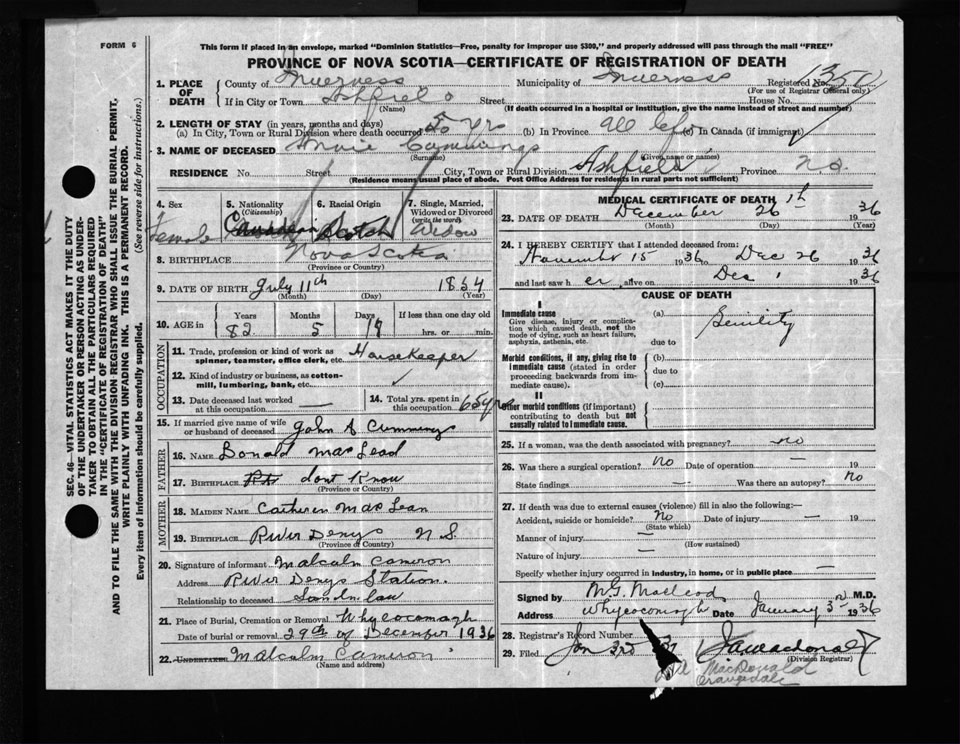 FORM 6
This form if placed in an envelope, marked "Dominion Statistics—Free, penalty for improper use $300," and properly addressed will pass through the mail "FREE"
PROVINCE OF NOVA SCOTIA—CERTIFICATE OF REGISTRATION OF DEATH
SEC. 46—VITAL STATISTICS ACT MAKES IT THE DUTY
OF THE UNDERTAKER OR PERSON ACTING AS UNDER-
TAKER TO OBTAIN ALL THE PARTICULARS REQUIRED
IN THE "CERTIFICATE OF REGISTRATION OF DEATH"
AND TO FILE THE SAME WITH THE DIVISION REGISTRAR WHO SHALL ISSUE THE BURIAL PERMIT,
WRITE PLAINLY WITH UNFADING INK. THIS IS A PERMANENT RECORD.
Every item of Information should be carefully supplied. (See reverse side for instructions.)
1. PLACE OF DEATH County of Inverness Municipality of Inverness Registered No. 1350
(For use of Registrar General only)
If in City or Town Ashfield Street House No.
(Name) (If death occurred in a hospital or institution, give the name instead of street and number)
2. LENGTH OF STAY (in years, months and days)
(a) In City, Town or Rural Division where death occurred yrs (b) In Province all life (c) In Canada (if immigrant)
3. NAME OF DECEASED Cummings
(Surname) (Given name or names)
RESIDENCE No Street City, Town or Rural Division Ashfield Province N.S.
(Residence means usual place of abode. Post Office Address for residents in rural parts not sufficient)
4. Sex Female
5. Nationality (Citizenship) Canadian
6. Racial Origin Scotch
7. Single, Married, Widowed or Divorced (write the word) Widow
8. BIRTHPLACE Nova Scotia
(Province or Country)
9. DATE OF BIRTH July 11th 1854
(Month) (Day) (Year)
10. AGE in Years 82 Months 5 Days If less than one day old hrs. or min.
OCCUPATION
11. Trade, profession or kind of work as spinner, teamster, office clerk, etc. Housekeeper
12. Kind of industry or business, as cotton-mill, lumbering, bank, etc. ✓
13. Date deceased last worked at this occupation — 14. Total yrs. spent in this occupation 65 yrs
15. If married give name of wife or husband of deceased John A Cummings
FATHER
16. NAME Donald MacLeod
17. BIRTHPLACE dont Know
(Province or Country)
MOTHER
18. MAIDEN NAME Catheren MacLean
19. BIRTHPLACE River Denys N S.
(Province or Country)
20. Signature of informant Malcolm Cameron
Address River Denys Station.
Related to deceased Sondnlaw
21. Place of Burial, Cremation or Removal Whycocomagh
Date of burial or removal 29th of December 1936
22. UNDERTAKER Malcolm Cameron
(Name and address)
MEDICAL CERTIFICATE OF DEATH
23. DATE OF DEATH December 26th 1936
(Month) (Day) (Year)
24. I HEREBY CERTIFY that I attended deceased from:
November 15 1936 to Dec 26 1936
and last saw h er, alive on Dec 1 1936
CAUSE OF DEATH
I
Immediate cause
Give disease, injury or complication which caused death, not the mode of dying, such as heart failure, asphyxia, asthenia, etc.
(a) Senility
due to
Morbid conditions, if any, giving rise to immediate cause (stated in order proceeding backwards from immediate cause).
(b)
due to
(c)
II
Other morbid conditions (if important) contributing to death but not causally related to immediate cause.
25. If a woman, was the death associated with pregnancy? no
26. Was there a surgical operation? No Date of operation — 19
State findings — Was there an autopsy? No
27. If death was due to external causes (violence) fill in also the following:—
Accident, suicide or homicide? No Date of injury — 19
(State which)
Manner of injury —
(How sustained)
Nature of injury —
Specify whether injury occurred in industry, in home, or in public place —
Signed by M.G. MacLeod M.D.
Address Whycocomagh Date January 3rd 1936
28. Registrar's Record Number
29. Filed Jan 3rd
(Division Registrar)
MacDonald
Orangedale